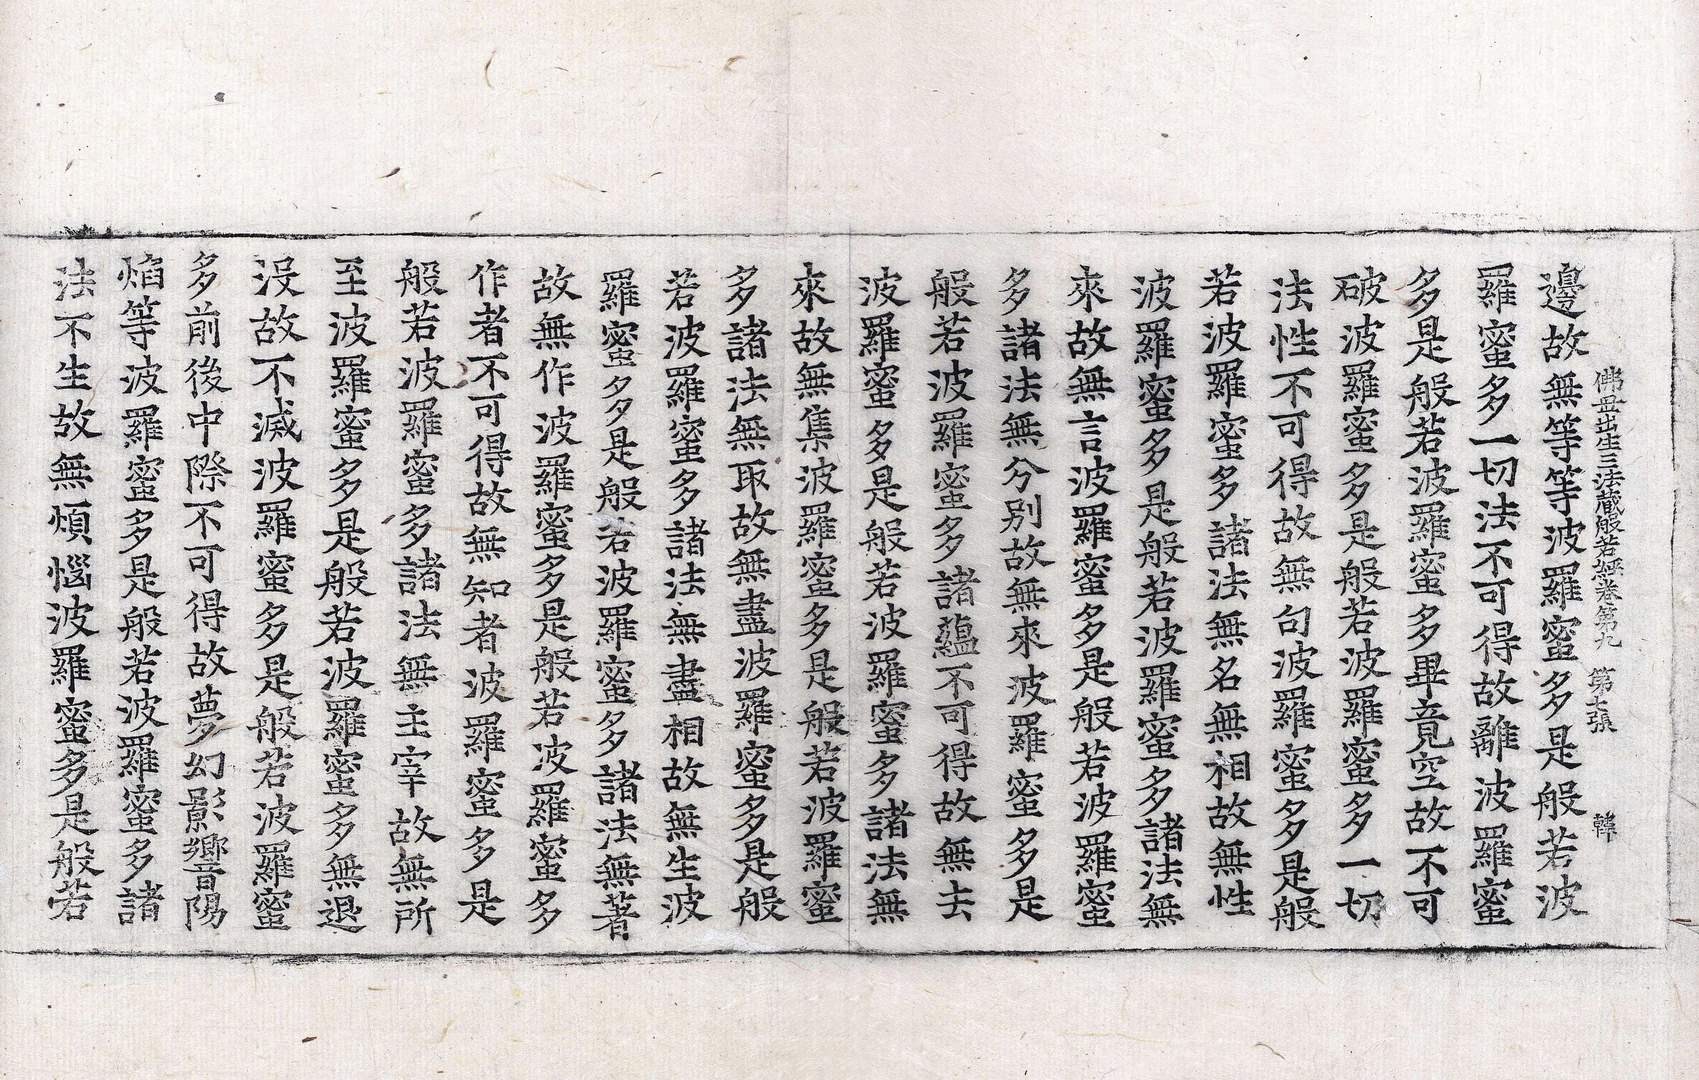 佛母出生三法藏般若經卷第九 第七張 韓
邊故無等等波羅蜜多是般若波
羅蜜多一切法不可得故離波羅蜜
多是般若波羅蜜多畢竟空故不可
破波羅蜜多是般若波羅蜜多一切
法性不可得故無句波羅蜜多是般
若波羅蜜多諸法無名無相故無性
波羅蜜多是般若波羅蜜多諸法無
來故無言波羅蜜多是般若波羅蜜
多諸法無分別故無來波羅蜜多是
般若波羅蜜多諸蘊不可得故無去
波羅蜜多是般若波羅蜜多諸法無
來故無集波羅蜜多是般若波羅蜜
多諸法無取故無盡波羅蜜多是般
若波羅蜜多諸法無盡相故無生波
羅蜜多是般若波羅蜜多諸法無著
故無作波羅蜜多是般若波羅蜜多
作者不可得故無知者波羅蜜多是
般若波羅蜜多諸法無主宰故無所
至波羅蜜多是般若波羅蜜多無退
沒故不滅波羅蜜多是般若波羅蜜
多前後中際不可得故夢幻影響陽
焰等波羅蜜多是般若波羅蜜多諸
法不生故無煩惱波羅蜜多是般若